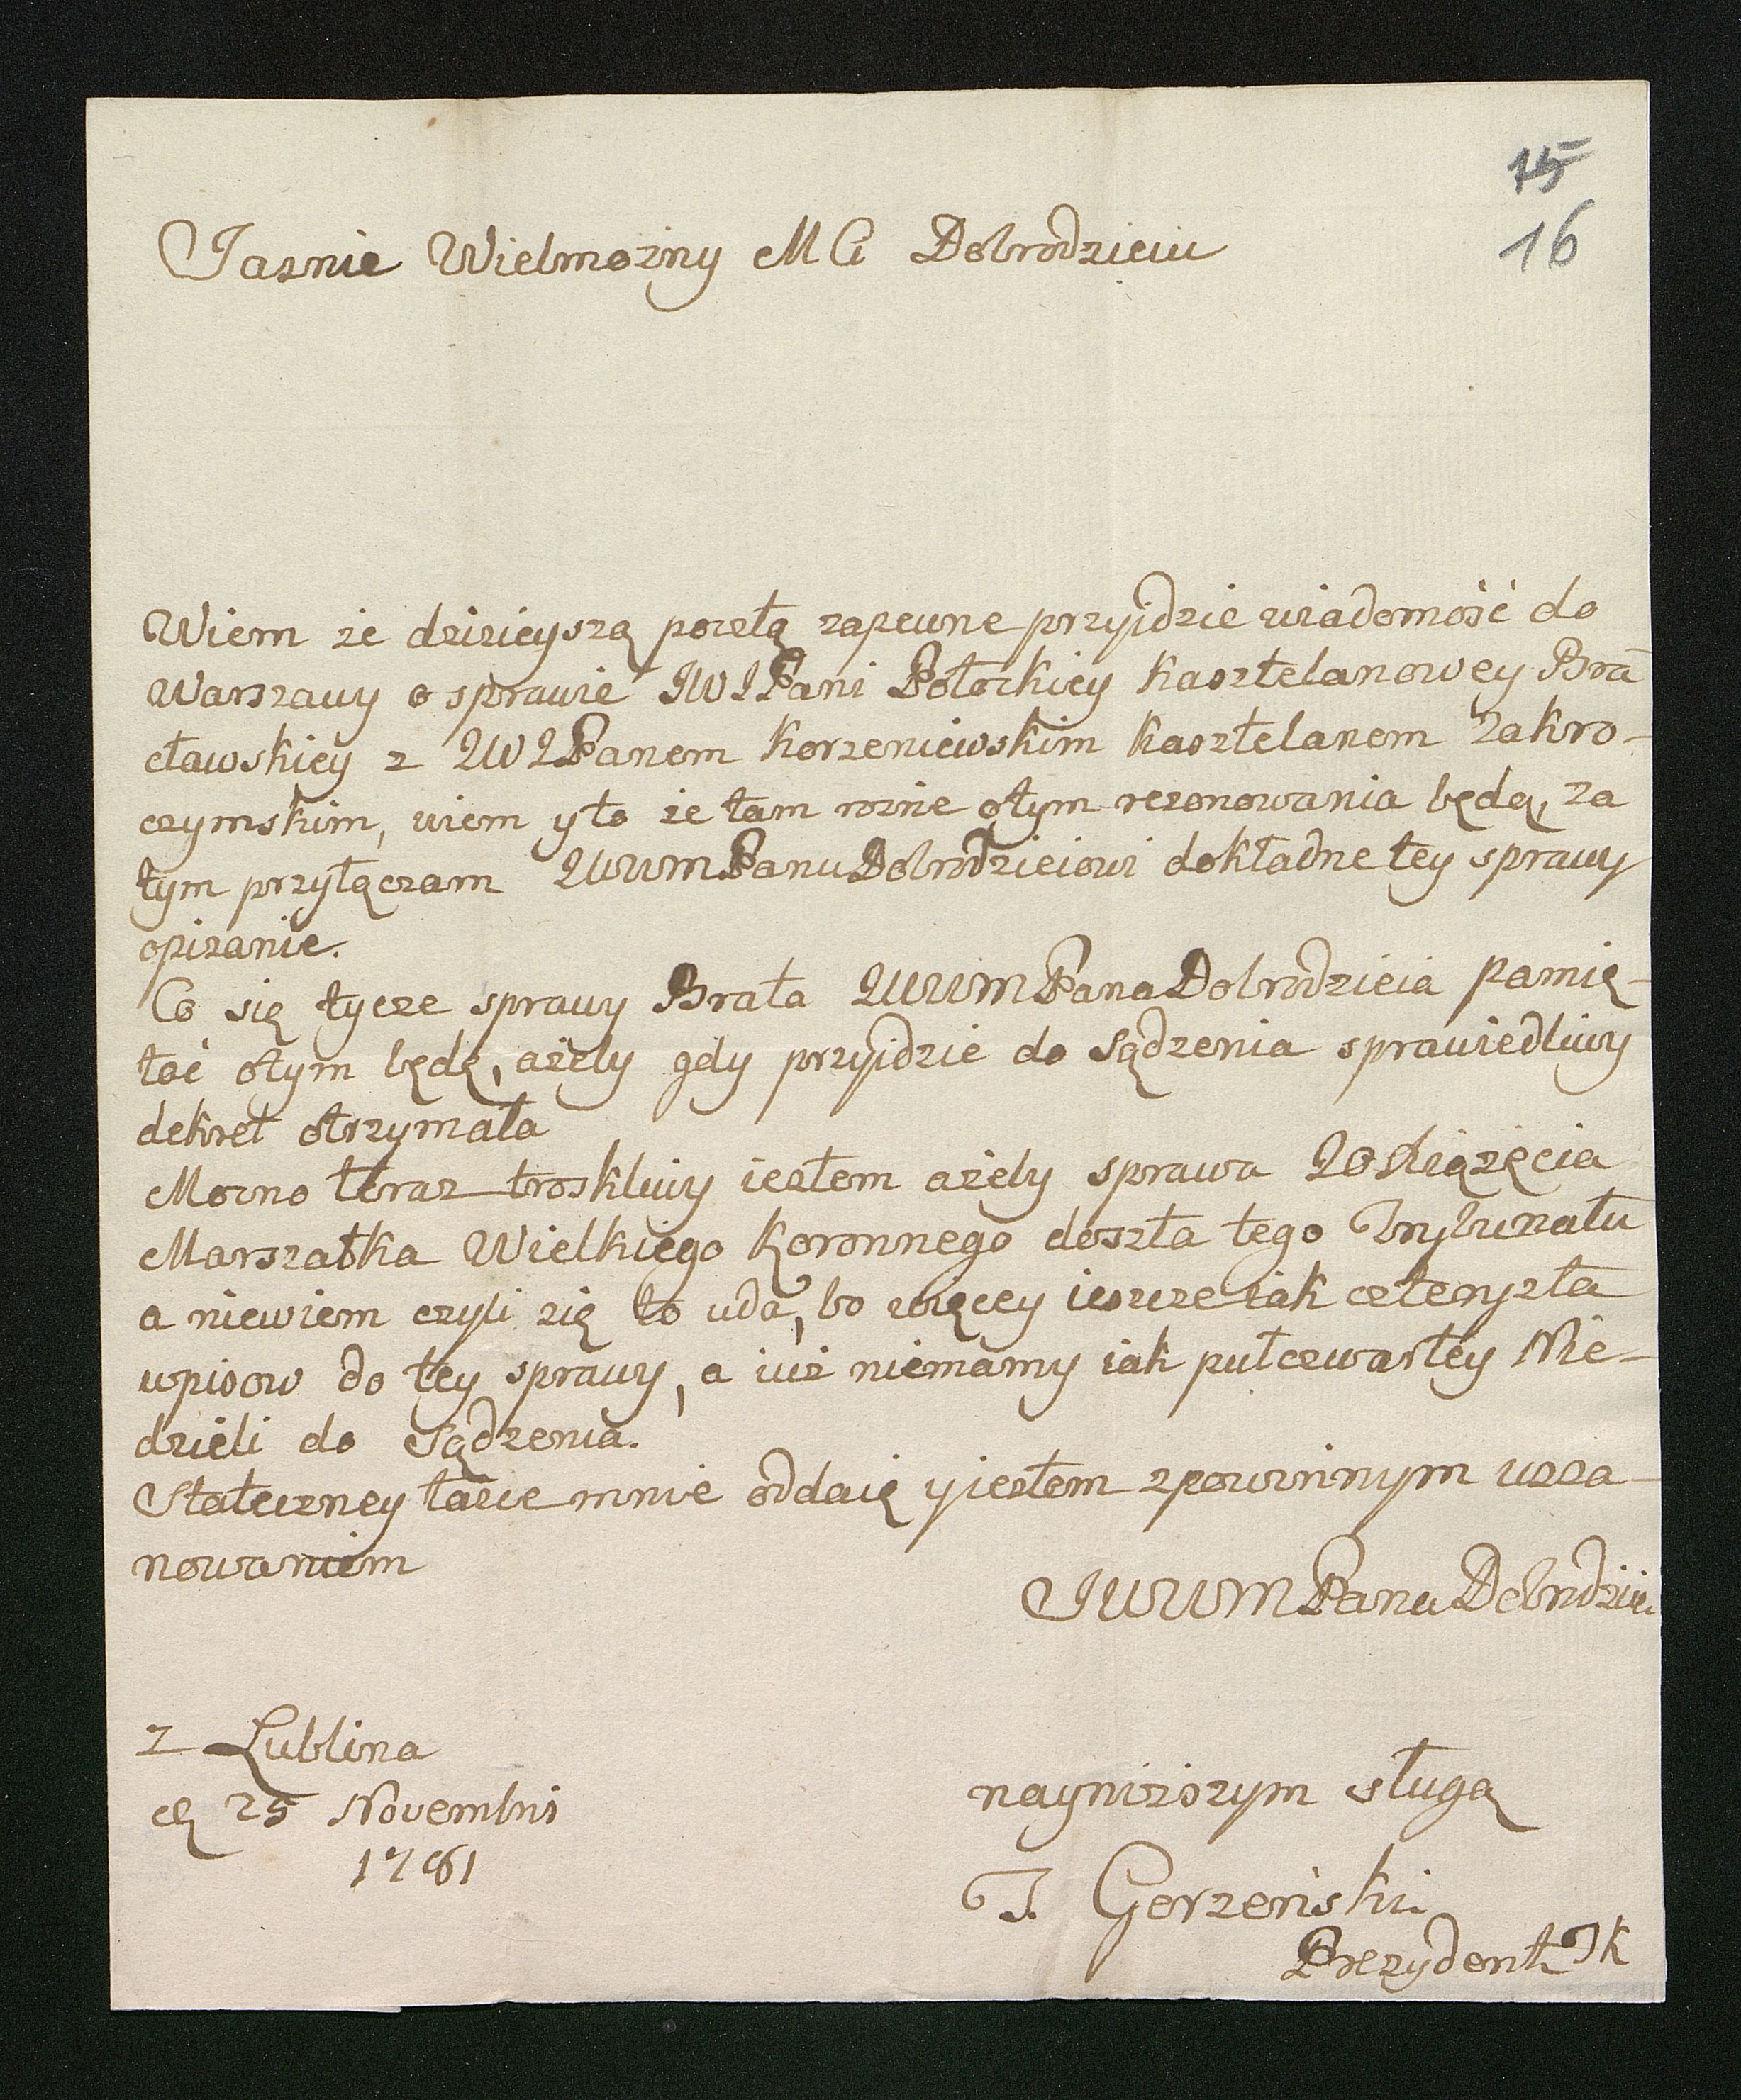 15
16
Jasnie Wielmożny MCi Dobrodzieiu
Wiem że dzisieyszą pocztą zapewne przyidzie wiadomość do
Warszawy o sprawie JWJPani Potockiey Kasztelanowey Bra
cławskiey z JWJPanem Korzeniewskim Kasztelanem Zakro-
czymskim, wiem y to że tam rozne otym rezonowania będą, za
tym przyłączam JWWMPanu Dobrodzieiowi dokładne tey sprawy
opisanie.
Co się tycze sprawy Brata JWWMPana Dobrodzieia pamię-
tać otym będę, ażeby gdy przyidzie do sądzenia sprawiedliwy
dekret otrzymała
Mocno teraz troskliwy iestem ażeby sprawa JO Xiążęcia
Marszałka Wielkiego Koronnego doszła tego Trybunału
a niewiem czyli się to uda, bo więcey ieszcze iak czterysta
wpisow do tey sprawy, a iuż niemamy iak pułczwartey Nie-
dzieli do sądzenia.
Stateczney łasce mnie oddaię y iestem zpowinnym usza-
nowaniem
JWWMPana Dobrodzie
z Lublina
25 Novembris
1781
nayniższym sługą
T. Gorzeński
Prezydent TK